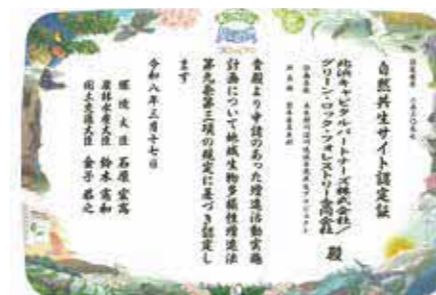 自然共生サイト認定証
北浜キャピタルパートナーズ株式会社/
グリーン・ロック・フォレストリー合同会社
殿
貴殿より申請のあった増進活動実施
計画について地域生物多様性増進法
第九条第三項の規定に基づき認定し
ます
令和八年三月十七日
環境大臣 石原宏高
農林水産大臣 鈴木憲和
国土交通大臣 金子恭之